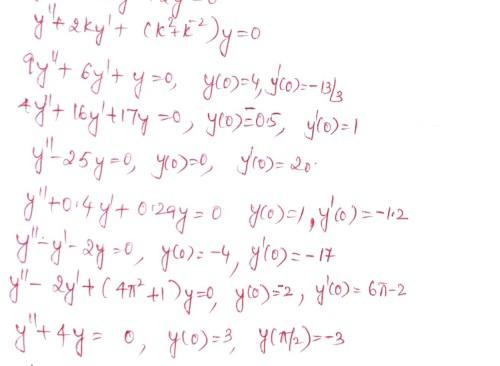 y'' + 2ky' + (k²+k⁻²)y=0
9y''+ 6y'+ y =0, y(0)=4, y'(0)=-13/3
4y''+ 16y'+17y =0, y(0)=-0.5, y'(0)=1
y''-25y=0, y(0)=0, y'(0)= 20.
y''+0.4y'+ 0.29y = 0 y(0)=1, y'(0)=-1.2
y''-y'-2y=0, y(0)=-4, y'(0)=-17
y''- 2y'+(4π²+1)y=0, y(0)=-2, y'(0)= 6π-2
y''+4y = 0, y(0)=3, y(π/2)=-3